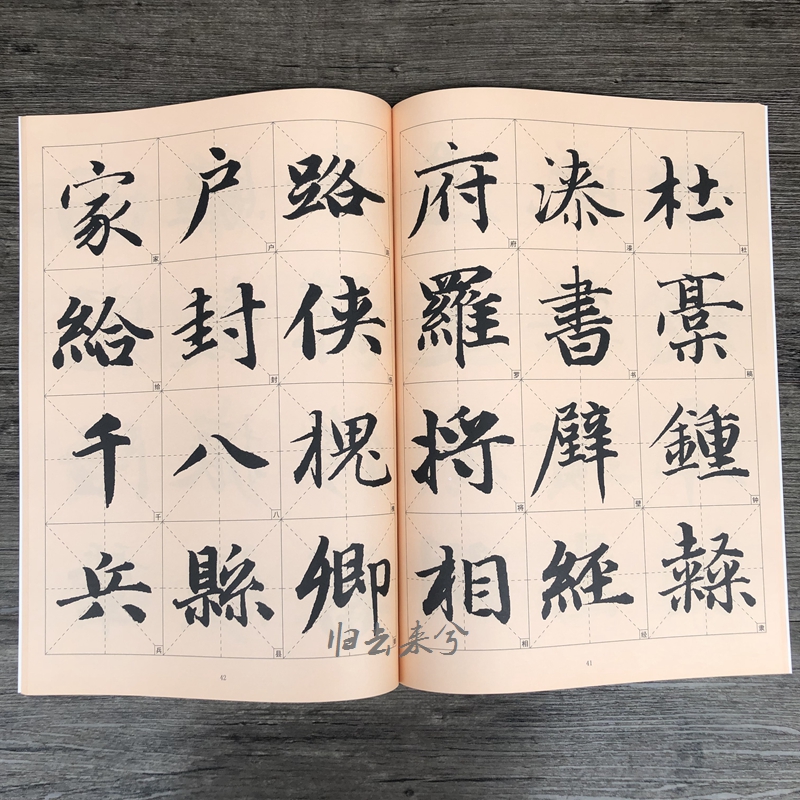 杜槀鍾隸
杜
钟
隶
漆書壁經
漆
书
壁
经
府羅將相
府
罗
将
相
41
路俠槐卿
户封八縣
户
封
八
县
家給千兵
家
给
千
兵
42
归去来兮